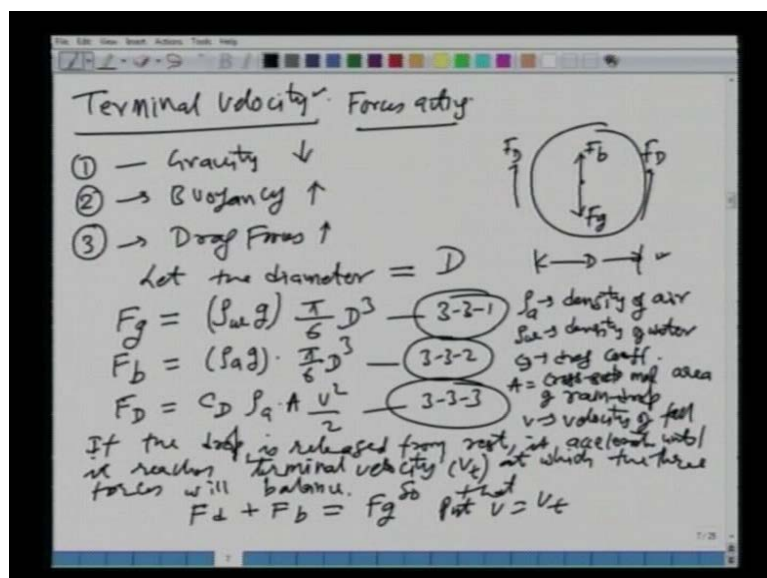 File Edit View Insert Actions Tools Help
Terminal Velocity. Forces acting
① — Gravity ↓
② → Buoyancy ↑
③ → Drag Forces ↑
F_D F_b F_D
F_g
K—D—→
Let the diameter = D
F_g = (ρ_w g) π/6 D³ — 3-3-1
F_b = (ρ_a g) · π/6 D³ — 3-3-2
F_D = C_D ρ_a · A v²/2 — 3-3-3
ρ_a → density of air
ρ_w → density of water
C_D → drag coeff.
A = cross-sectional area
of rain-drop
v → velocity of fall
If the drop is released from rest, it accelerates until
it reaches terminal velocity (V_t) at which the three
forces will balance.
F_d + F_b = F_g so that Put v = V_t
7/25